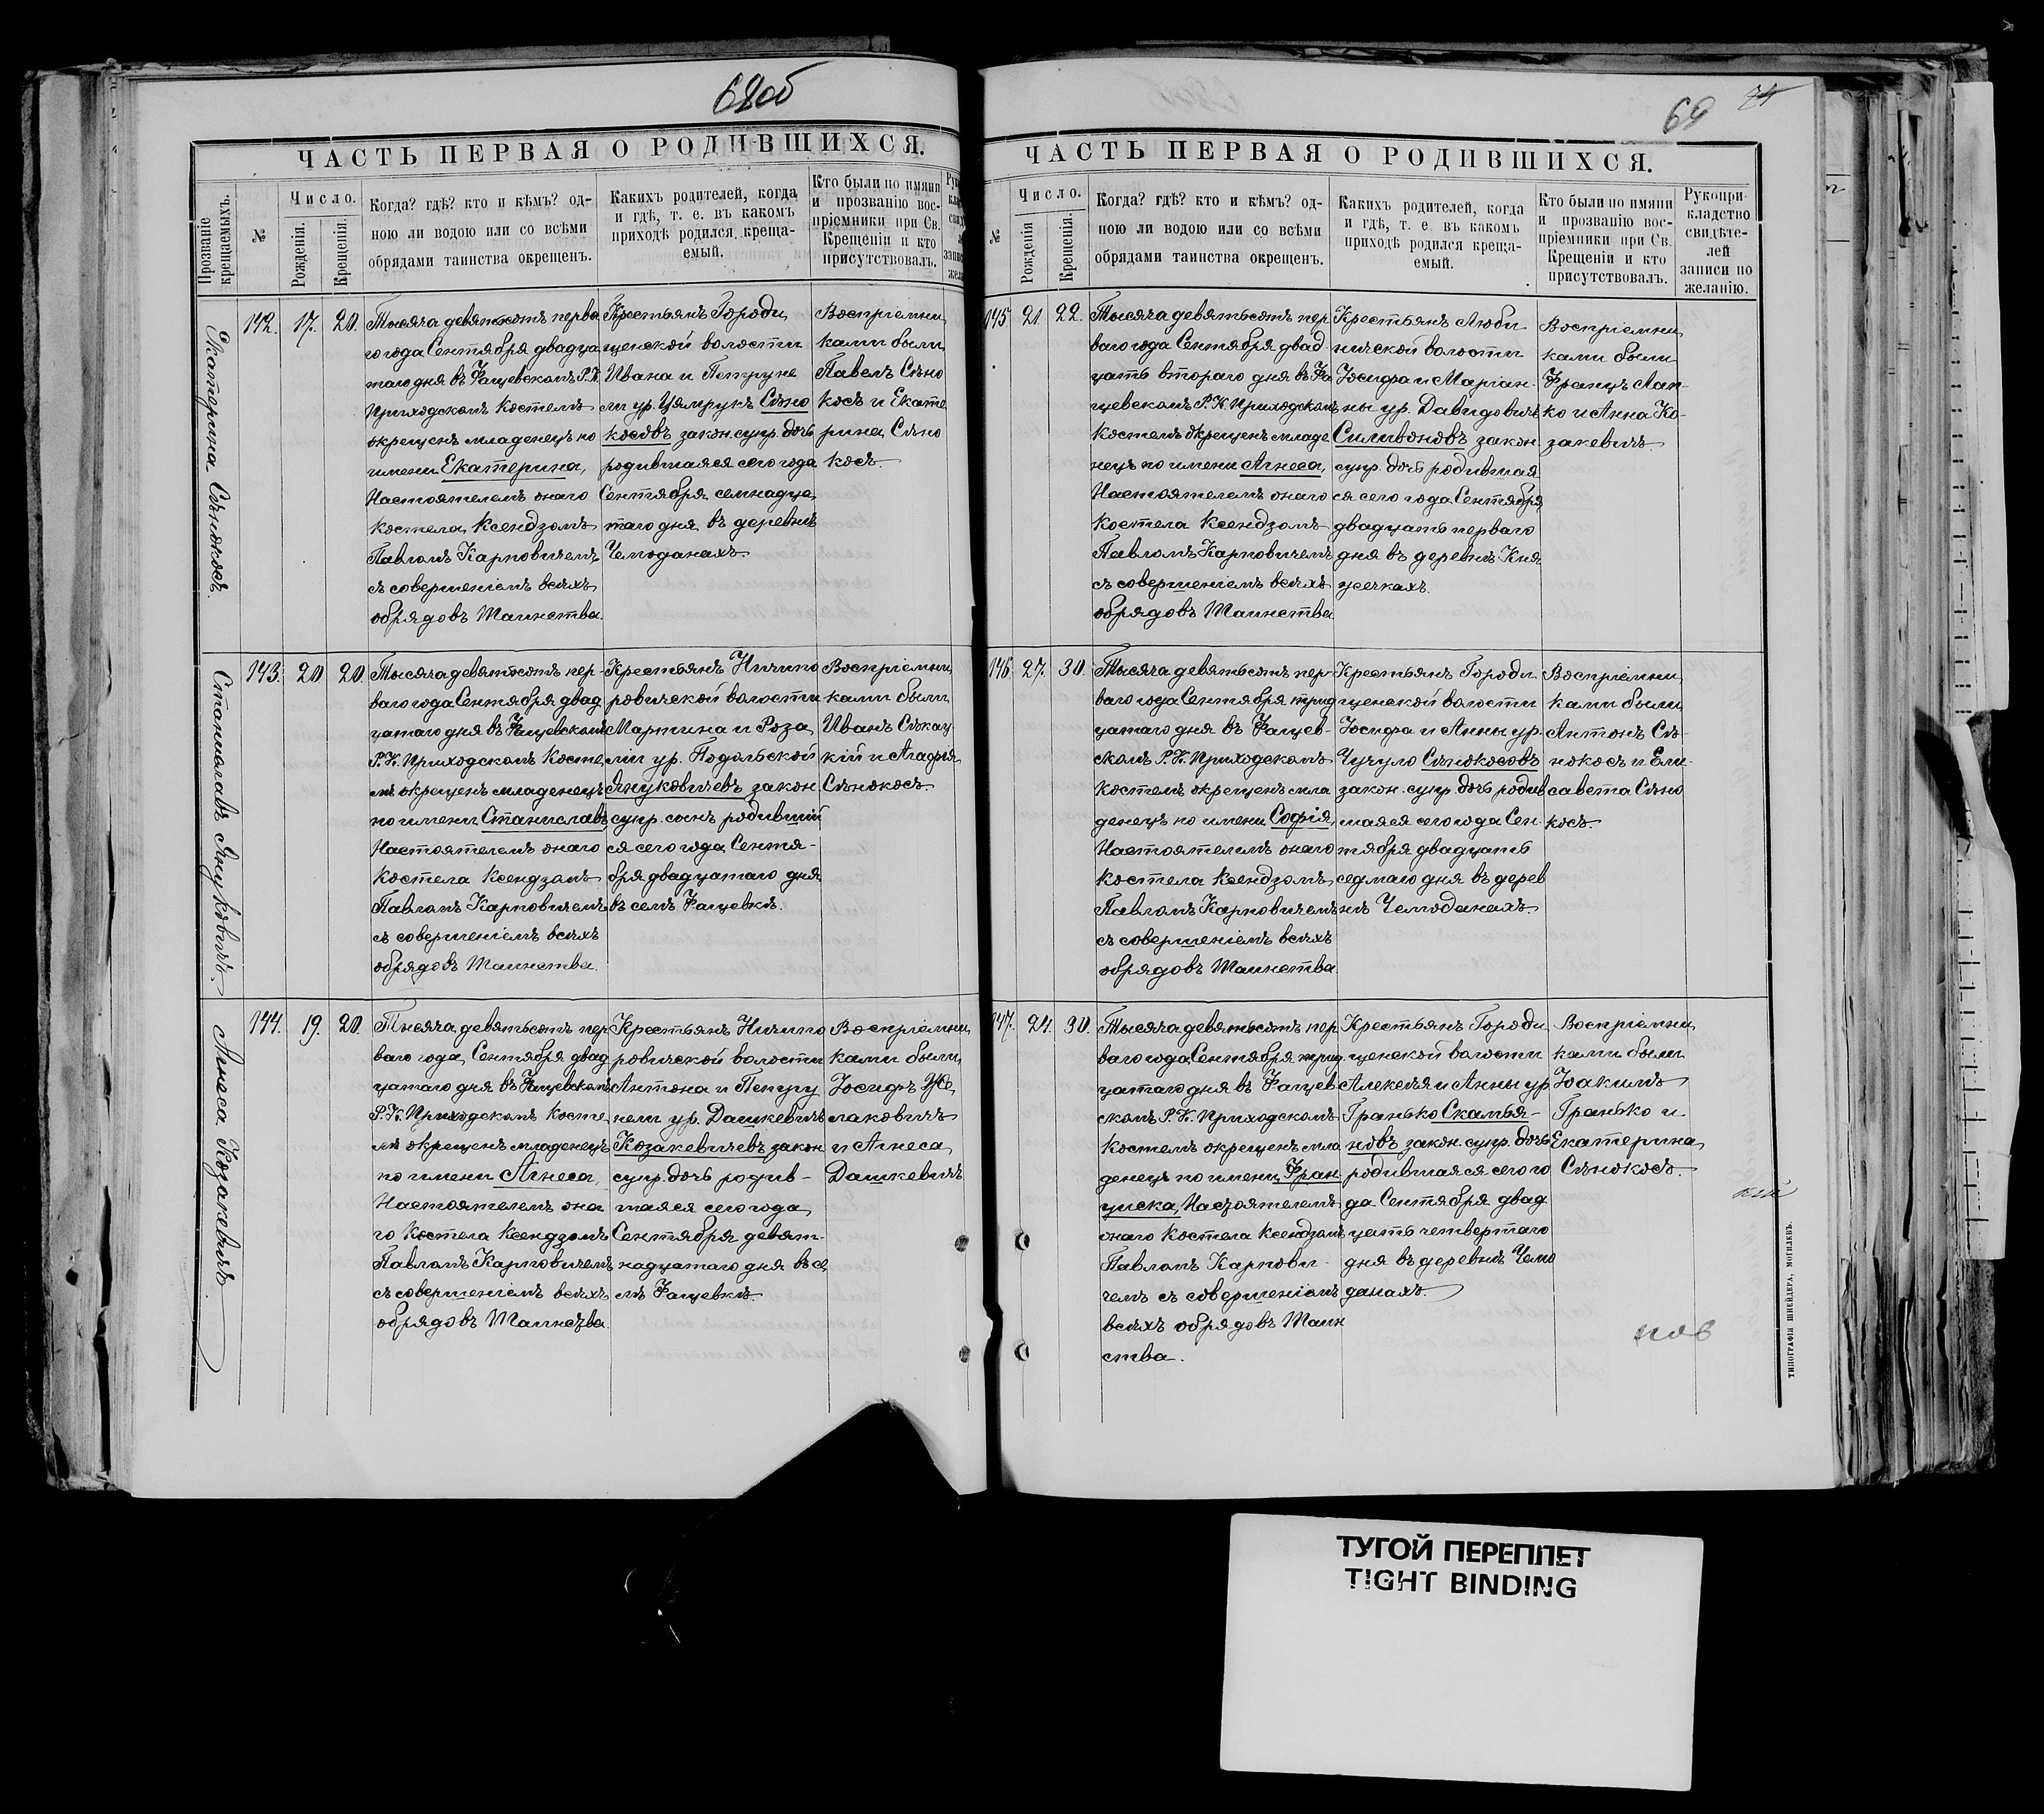 68об
ЧАСТЬ ПЕРВАЯ О РОДИВШИХСЯ.
Прозваніе крещаемыхъ.
№
Число.
Рожденія.
Крещенія.
Когда? гдѣ? кто и кѣмъ? од-
ною ли водою или со всѣми
обрядами таинства окрещенъ.
Какихъ родителей, когда
и гдѣ, т. е. въ какомъ
приходѣ родился креща-
емый.
Кто были по имяни
и прозванію вос-
пріемники при Св.
Крещеніи и кто
присутствовалъ.
Екатерина Сѣнокосъ.
142. 17. 20.
Тысяча девятьсотъ перва
го года Сентября двадца
таго дня въ Фащевскомъ Р.К.
Приходскомъ Костелѣ
окрещенъ младенецъ по
имени Екатерина,
Настоятелемъ онаго
Костела Ксендзомъ
Павломъ Карповичемъ,
съ совершеніемъ всѣхъ
обрядовъ Таинства.
Крестьянъ Городи
щенской волости
Ивана и Петруне
ли ур. Цямрукъ Сѣно
косовъ закон. супр. дочь
родившаяся сего года
Сентября семнадца
таго дня въ деревнѣ
Чемоданахъ.
Воспріемни
ками были
Павелъ Сѣно
косъ и Екате
рина Сѣно
косъ.
Станиславъ Януковичъ.
143. 20 20.
Тысяча девятьсотъ пер-
ваго года Сентября двад
цатаго дня въ Фащевскомъ
Р.К. Приходскомъ Косте
лѣ окрещенъ младенецъ
по имени Станиславъ,
Настоятелемъ онаго
Костела Ксендзомъ
Павломъ Карповичемъ
съ совершеніемъ всѣхъ
обрядовъ Таинства.
Крестьянъ Ничипо
ровичской волости
Мартина и Роза
ліи ур. Подольской
Януковичевъ закон.
супр. сынъ родившій
ся сего года Сентя-
бря двадцатаго дня
въ селѣ Фащевкѣ.
Воспріемни
ками были
Иванъ Сѣкац
кій и Агафія
Сѣнокосъ.
Агнеса Козакевичъ.
144. 19. 20.
Тысяча девятьсотъ пер
ваго года Сентября двад
цатаго дня въ Фащевскомъ
Р.К. Приходскомъ Косте
лѣ окрещенъ младенецъ
по имени Агнеса,
Настоятелемъ она
го Костела Ксендзомъ
Павломъ Карповичемъ
съ совершеніемъ всѣхъ
обрядовъ Таинства.
Крестьянъ Ничипо
ровичской волости
Антона и Петру
нели ур. Дашкевичъ
Козакевичевъ закон
супр. дочь родив-
шаяся сего года
Сентября девят-
надцатаго дня въ се
лѣ Фащевкѣ.
Воспріемни
ками были
Іосифъ Же
лаковичъ
и Агнеса
Дашкевичъ
69
ЧАСТЬ ПЕРВАЯ О РОДИВШИХСЯ.
№
Число.
Рожденія
Крещенія.
Когда? гдѣ? кто и кѣмъ? од-
ною ли водою или со всѣми
обрядами таинства окрещенъ.
Какихъ родителей, когда
и гдѣ, т. е. въ какомъ
приходѣ родился креща-
емый.
Кто были по имяни
и прозванію вос-
пріемники при Св.
Крещеніи и кто
присутствовалъ.
Рукопри-
кладство
свидѣте-
лей
записи по
желанію.
145 21. 22.
Тысяча девятьсотъ пер
ваго года Сентября двад
цать втораго дня въ Фа
щевскомъ Р.К. Приходскомъ
Костелѣ окрещенъ младе
нецъ по имени Агнеса,
Настоятелемъ онаго
Костела Ксендзомъ
Павломъ Карповичемъ
съ совершеніемъ всѣхъ
обрядовъ Таинства
Крестьянъ Люби
ничской волости
Іосифа и Маріан-
ны ур. Давидовичъ
Силивоновъ закон.
супр. дочь родившая
ся сего года Сентября
двадцать перваго
дня въ деревнѣ Кня
зечкахъ.
Воспріемни
ками были
Францъ Лап-
ко и Анна Ко-
закевичъ.
146. 27. 30.
Тысяча девятьсотъ пер-
ваго года Сентября трид
цатаго дня въ Фащев-
скомъ Р.К. Приходскомъ
Костелѣ окрещенъ мла
денецъ по имени Софія,
Настоятелемъ онаго
Костела Ксендзомъ
Павломъ Карповичемъ
съ совершеніемъ всѣхъ
обрядовъ Таинства.
Крестьянъ Городи
щенской волости
Іосифа и Анны ур.
Чучуло Сѣнокосовъ
закон. супр. дочь родив
шаяся сего года Сен-
тября двадцать
седмаго дня въ дерев
нѣ Чемоданахъ.
Воспріемни
ками были
Антонъ Сѣ-
нокосъ и Ели-
савета Сѣно
косъ.
147. 24. 30.
Тысяча девятьсотъ пер
ваго года Сентября трид
цатаго дня въ Фащев
скомъ Р.К. Приходскомъ
Костелѣ окрещенъ мла
денецъ по имени Фран
циска, Настоятелемъ
онаго Костела Ксендзомъ
Павломъ Карпови-
чемъ съ совершеніемъ
всѣхъ обрядовъ Таин
ства.
Крестьянъ Городи
щенской волости
Алексѣя и Анны ур
Гранько Скамья-
новъ закон. супр. дочь
родившаяся сего го
да Сентября двад
цать четвертаго
дня въ деревнѣ Чемо
данахъ.
Воспріемни
ками были
Іоакимъ
Гранько и
Екатерина
Сѣнокосъ.
ТИПОГРАФІЯ ШНЕЙДЕРА, МОГИЛЕВЪ.
ТУГОЙ ПЕРЕПЛЕТ
TIGHT BINDING